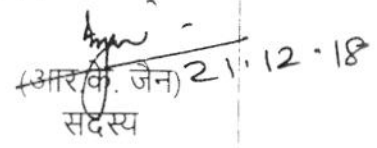 (आर. के. जैन) 21.12.18
सदस्य